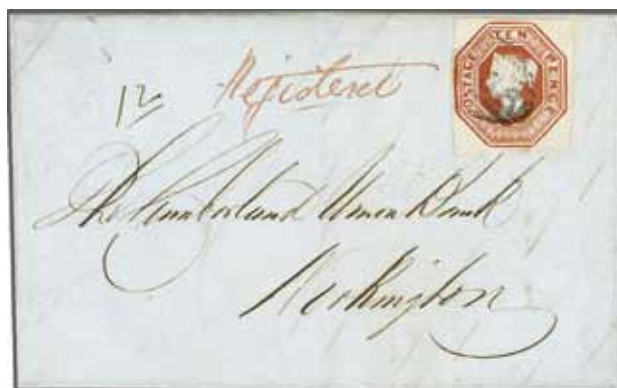 POSTAGE TEN PENCE
Registered
12
The Cumberland Union Bank
Workington